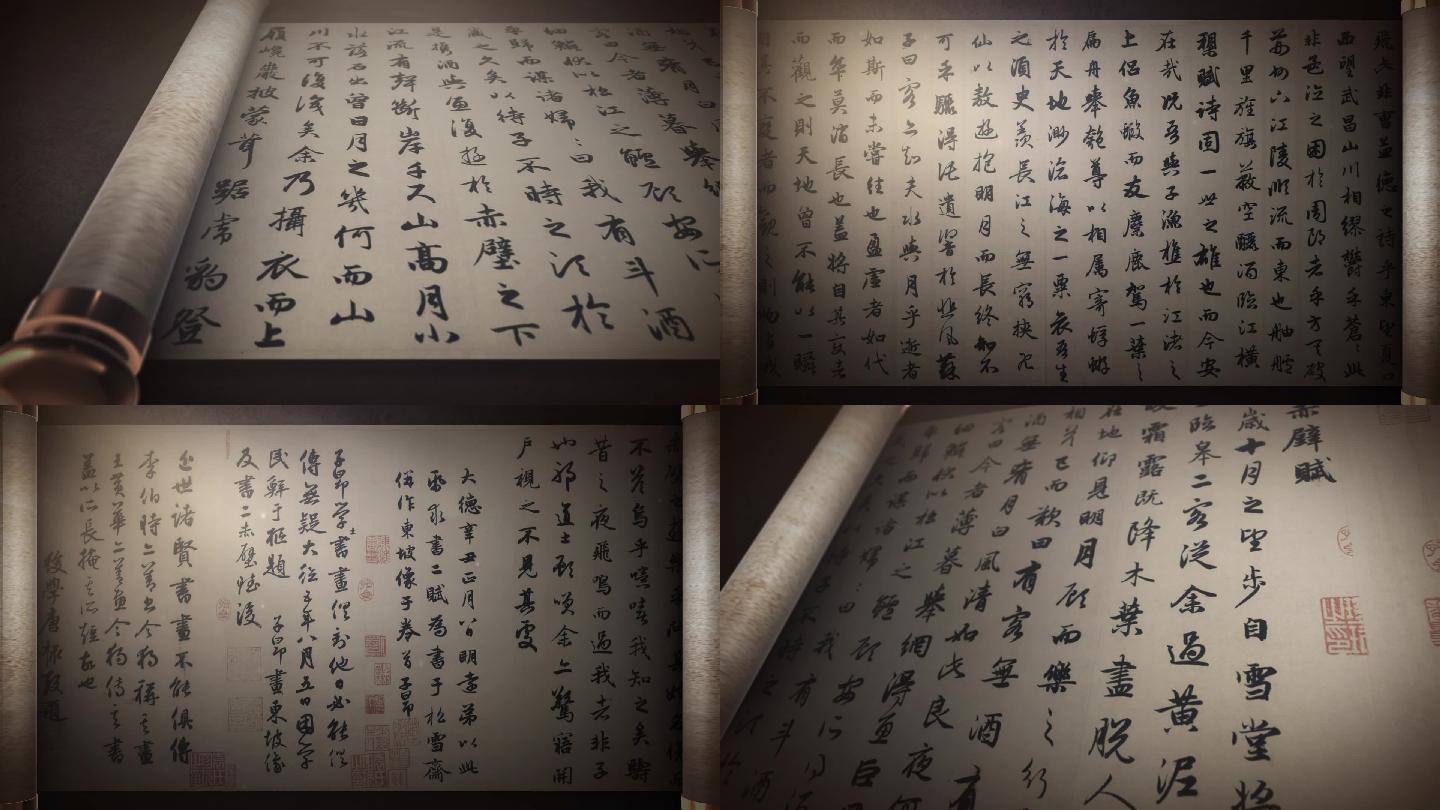 細鱗狀似松江之鱸顧安所
歸而謀諸婦:曰我有斗酒
藏之久矣以待子不時之須於
是攜酒與魚復遊於赤壁之下
江流有聲斷岸千尺山高月小
水落石出曾日月之幾何而山
川不可復識矣余乃攝衣而上
履巉巖披蒙茸踞虎豹登
飛此非曹孟德之詩乎東望夏口
西望武昌山川相繆鬱乎蒼:此
非孟德之困於周郎者乎方其破
荊州下江陵順流而東也舳艫
千里旌旗蔽空釃酒臨江橫
槊賦詩固一世之雄也而今安
在哉況吾與子漁樵於江渚之
上侶魚蝦而友麋鹿駕一葉之
扁舟舉匏尊以相屬寄蜉蝣
於天地渺滄海之一粟哀吾生
之須臾羨長江之無窮挾飛
仙以遨遊抱明月而長終知不
可乎驟得託遺響於悲風蘇
子曰客亦知夫水與月乎逝者
如斯而未嘗往也盈虛者如代
而卒莫消長也蓋將自其變者
而觀之則天地曾不能以一瞬
自其不變者而觀之則物與我
不答嗚乎噫嘻我知之矣疇
昔之夜飛鳴而過我者非子
也邪道士顧笑余亦驚寤開
戶視之不見其處
大德辛丑正月八日明遠弟以此
紙求書二賦為書于松雪齋
併作東坡像于卷首子昂
子昂學士書畫俱到他日必能俱
傳無疑大德五年八月五日困學
民鮮于樞題 子昂畫東坡像
及書二赤壁賦後
近世諸賢書畫不能俱傳
李伯時二善出今獨稱其畫
王黃華二善兼今獨傳其書
蓋以所長掩其所短故也
後學唐棣敬題
赤壁賦
歲十月之望步自雪堂將
臨皋二客從余過黃泥
霜露既降木葉盡脫人
在地仰見明月顧而樂之行
相答已而歎曰有客無酒有
酒無肴月白風清如此良夜何
客曰今者薄暮舉網得魚巨
細鱗狀似松江之鱸顧安所
而謀諸婦:曰我有斗酒